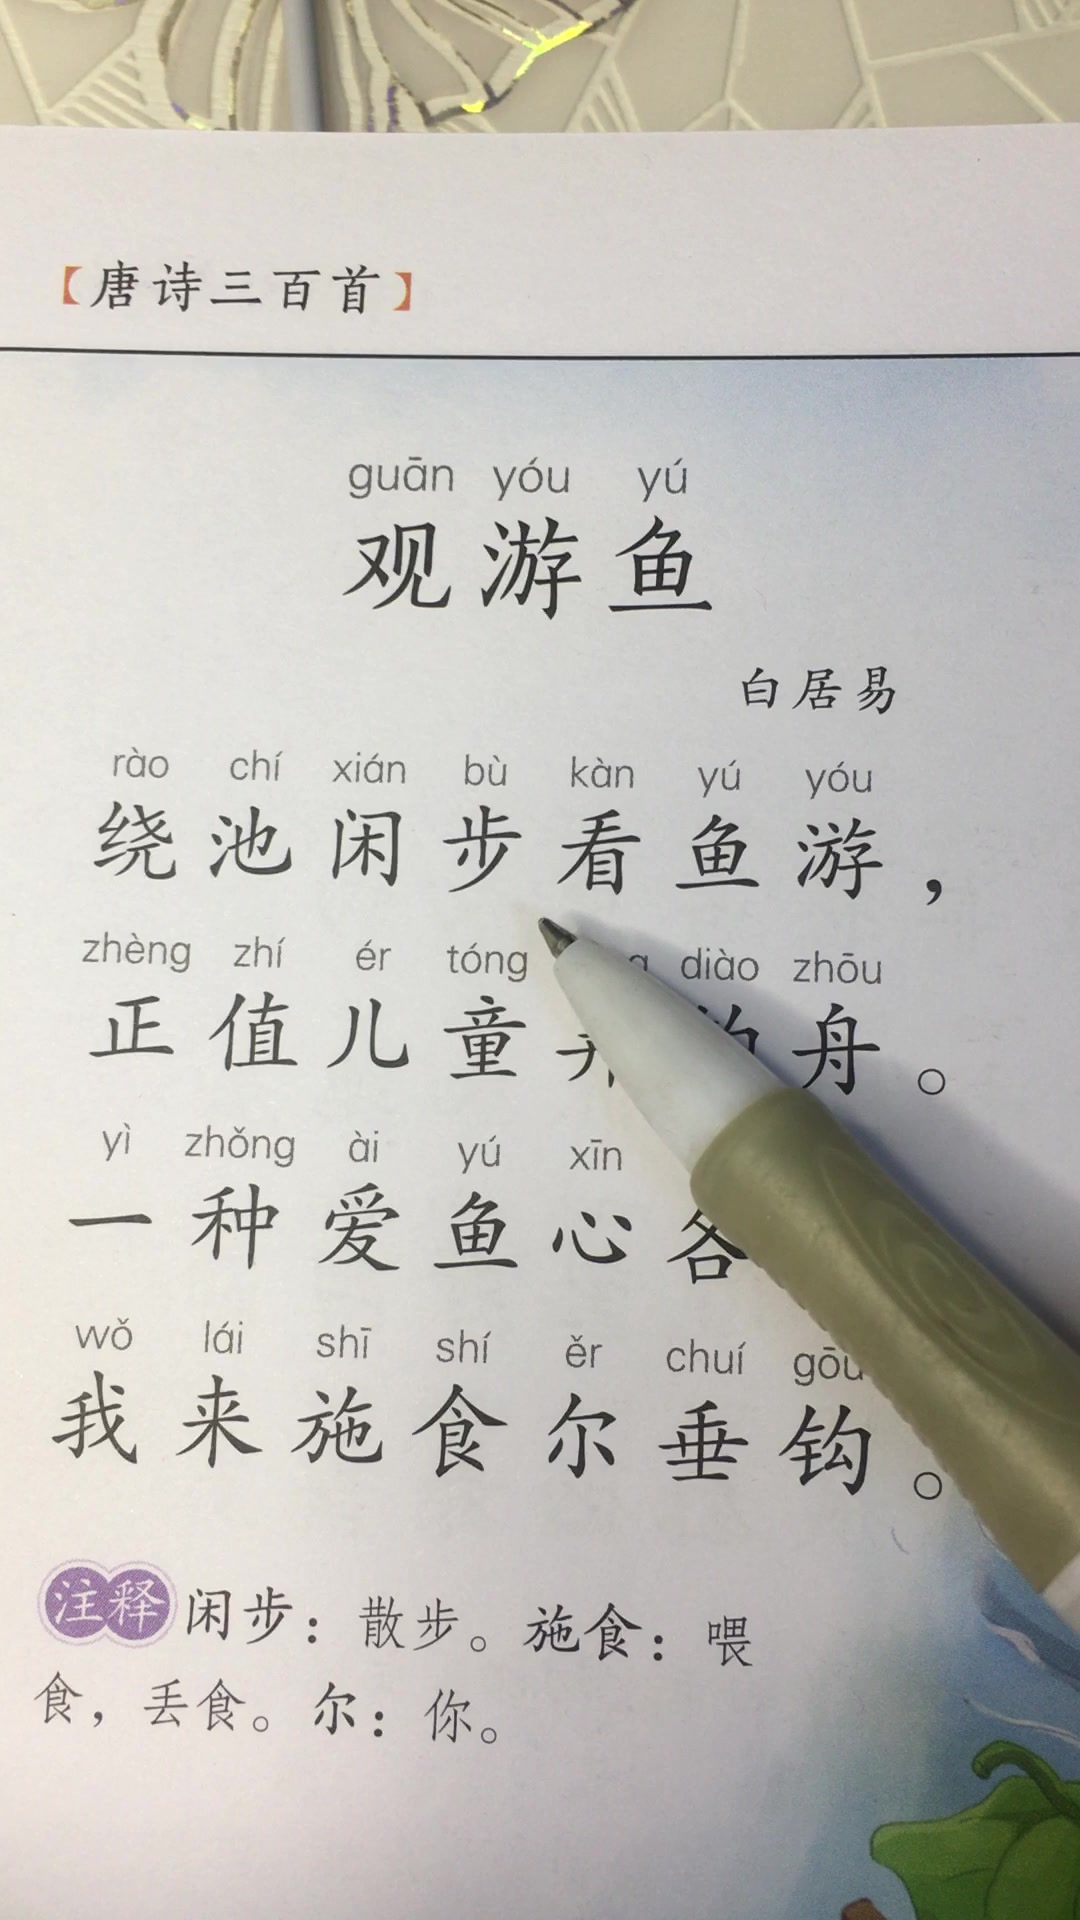 【唐诗三百首】
guān yóu yú
观游鱼
白居易
rào chí xián bù kàn yú yóu
绕池闲步看鱼游，
zhèng zhí ér tóng diào zhōu
正值儿童舟。
yì zhǒng ài yú xīn
一种爱鱼心各
wǒ lái shī shí ěr chuí gōu
我来施食尔垂钩。
注释 闲步：散步。施食：喂
食，丢食。尔：你。